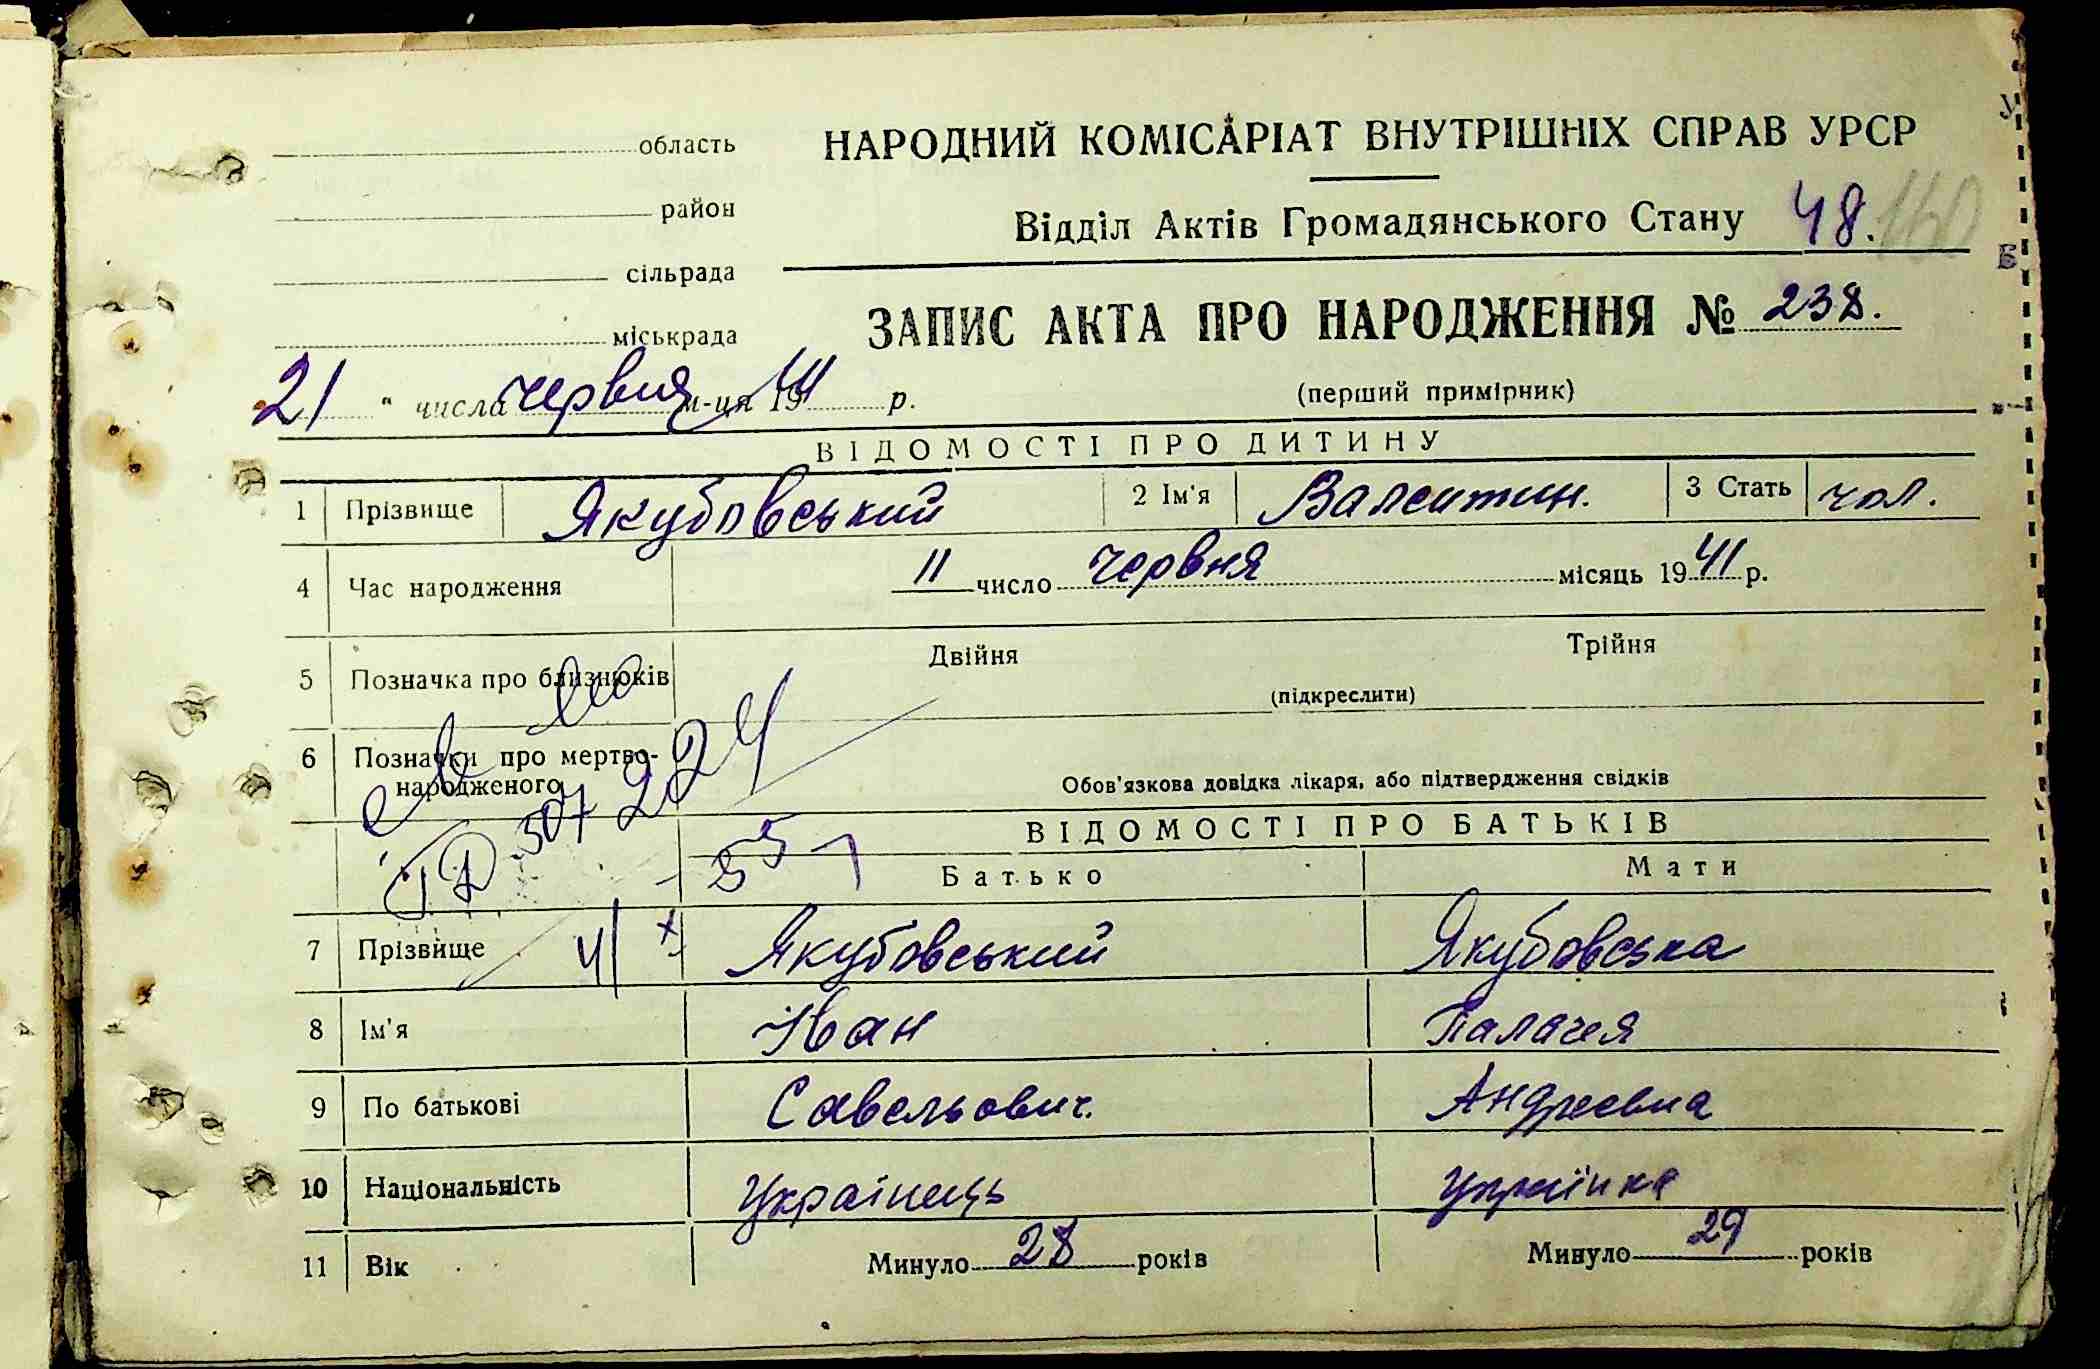 область
НАРОДНИЙ КОМІСАРІАТ ВНУТРІШНІХ СПРАВ УРСР
район
Відділ Актів Громадянського Стану 48. 160
сільрада
ЗАПИС АКТА ПРО НАРОДЖЕННЯ № 238.
міськрада
21 " числа червня м-ця 1941 р.
(перший примірник)
ВІДОМОСТІ ПРО ДИТИНУ
1 Прізвище Якубовський 2 Ім'я Валентин. 3 Стать чол.
4 Час народження 11 число червня місяць 1941 р.
5 Позначка про близнюків Двійня Трійня
(підкреслити)
6 Позначки про мертво-
народженого Обов'язкова довідка лікаря, або підтвердження свідків
507 224
ВІДОМОСТІ ПРО БАТЬКІВ
55
Батько Мати
7 Прізвище 41 Якубовський Якубовська
8 Ім'я Іван Палагея
9 По батькові Савельович. Андреевна
10 Національність Українець Українка
11 Вік Минуло 28 років Минуло 29 років